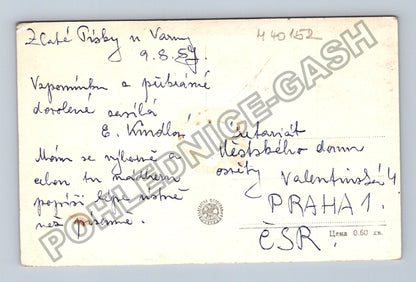 Zlaté Písky u Varny
9. 8. 57
M 40152
Vzpomínku a
dovolené zasílá
E.
Mám se výborně a
celou tu nádheru
popíši lépe ústně
než písemně.
Městského domu
osvěty Valentinská 4
PRAHA 1.
ČSR.
Цена 0.60 лв.
POHLEDNICE-GASH